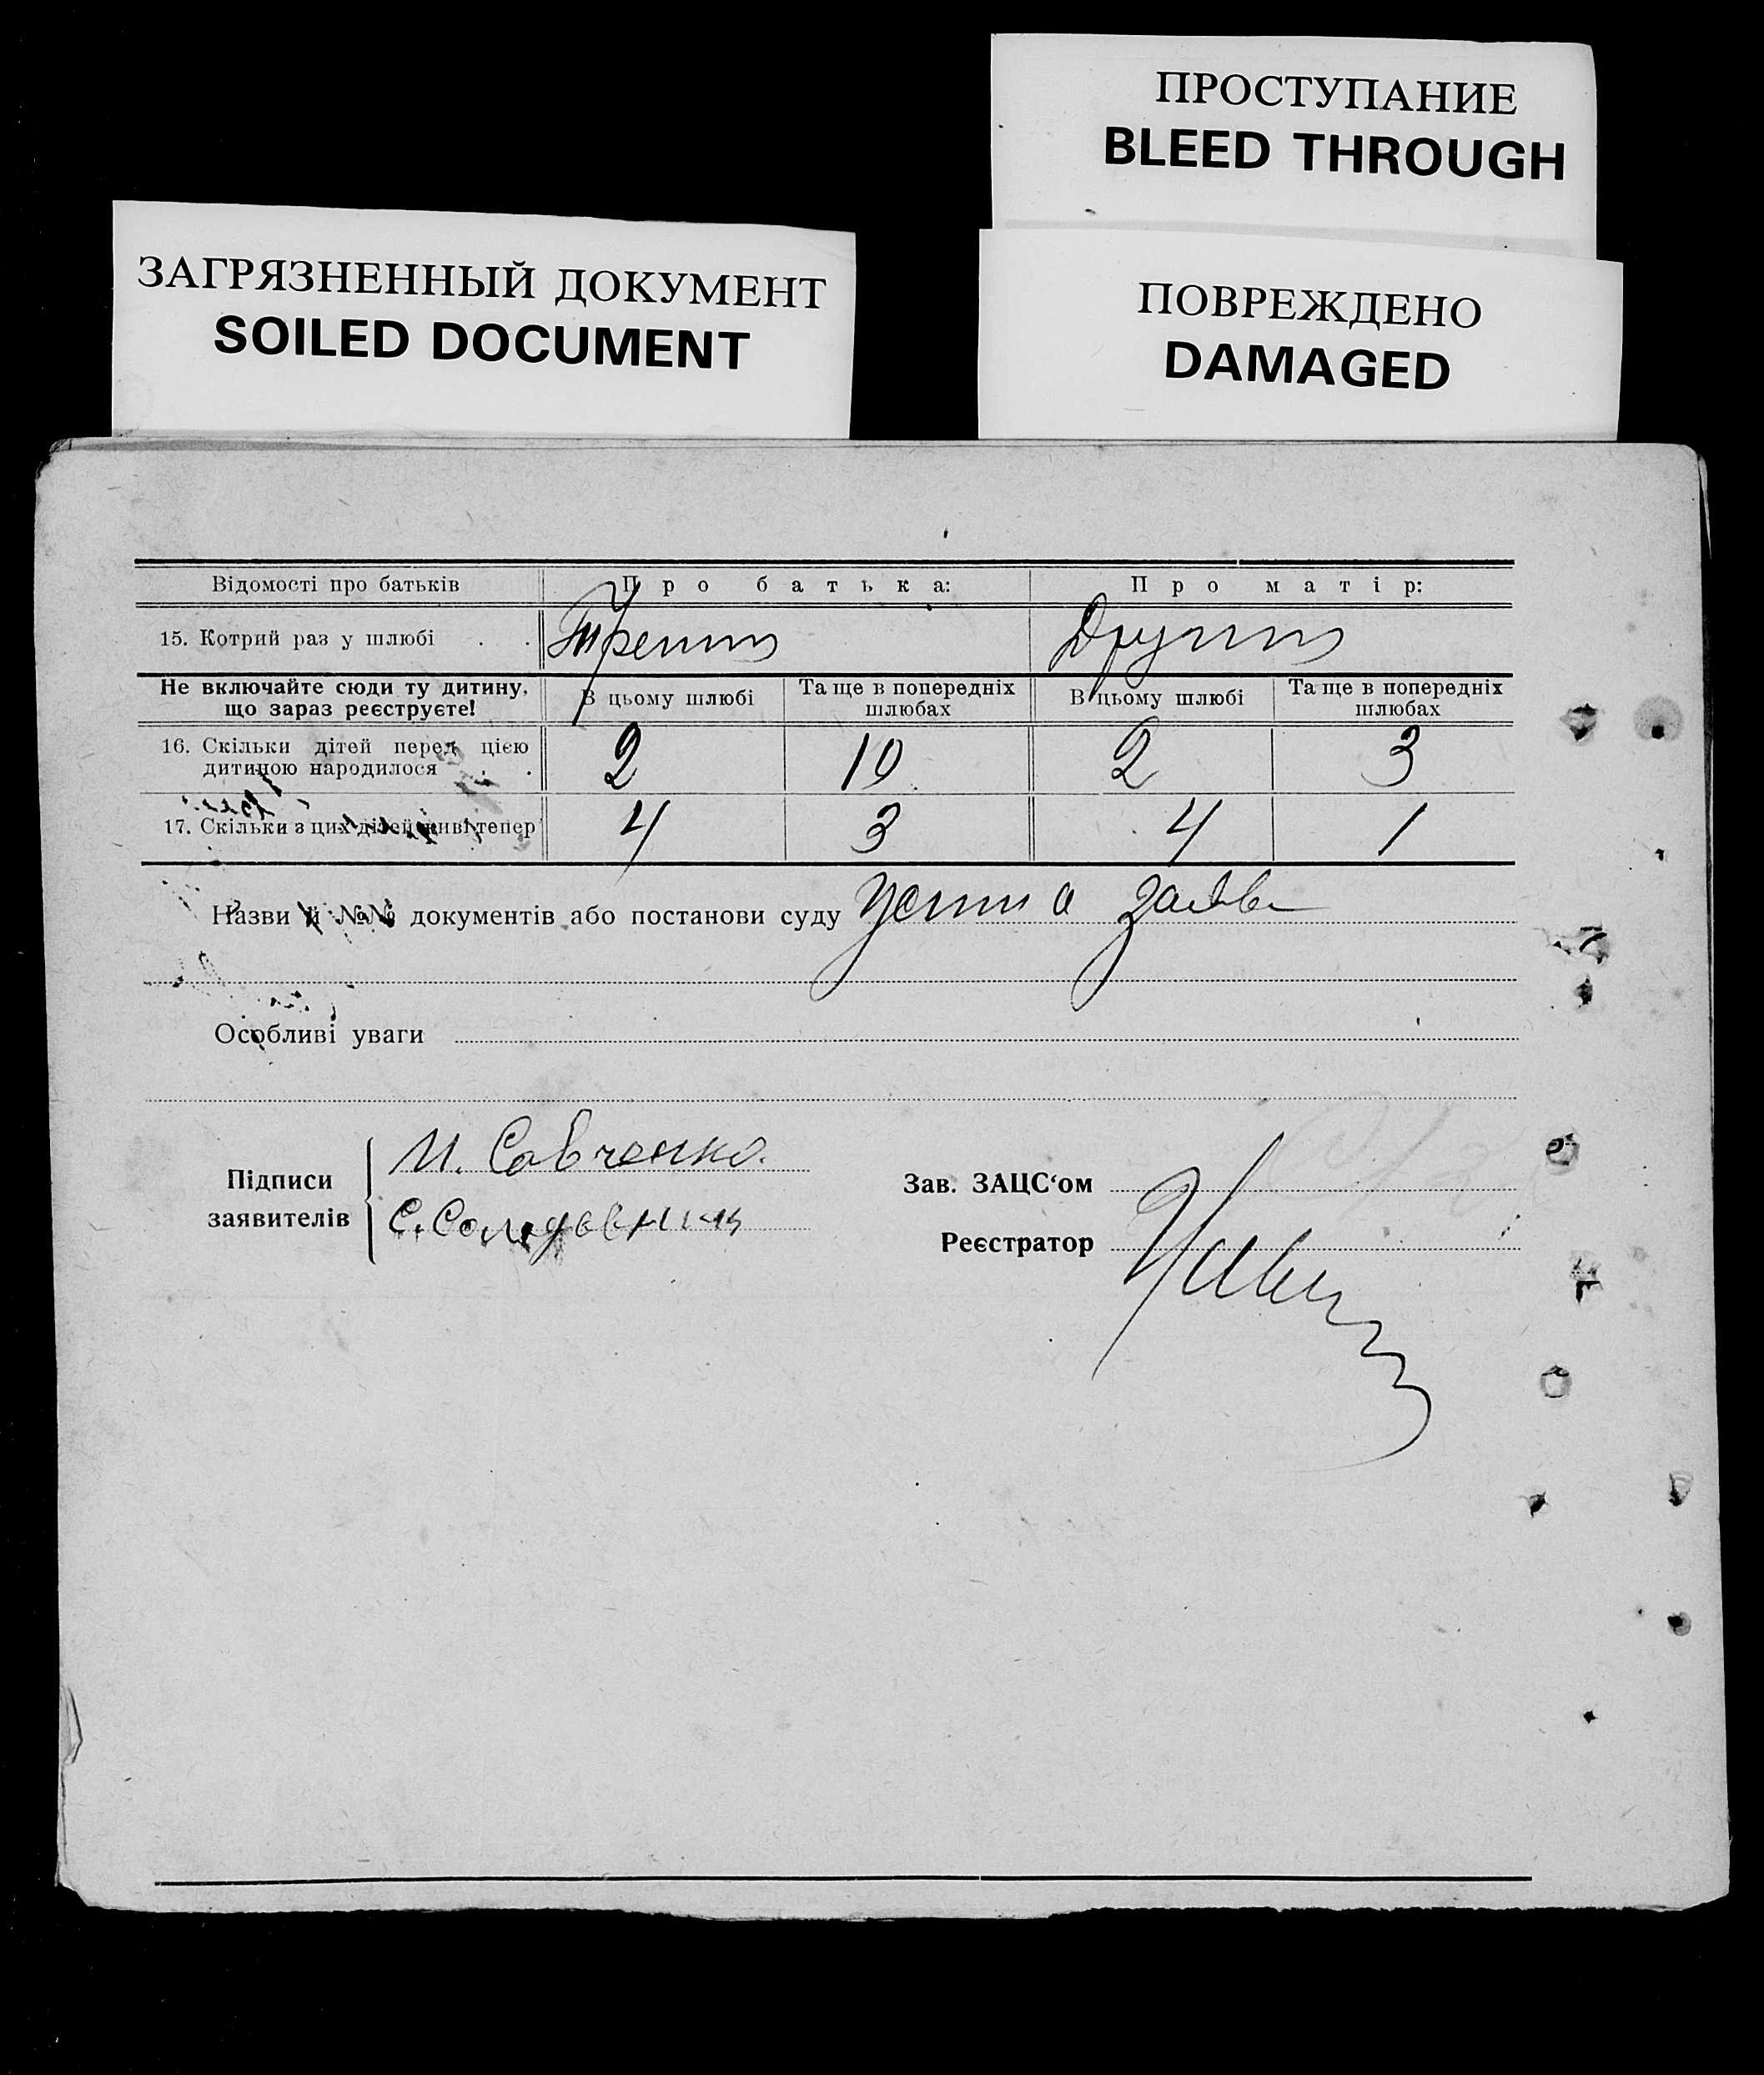 ПРОСТУПАНИЕ
BLEED THROUGH
ЗАГРЯЗНЕННЫЙ ДОКУМЕНТ
SOILED DOCUMENT
ПОВРЕЖДЕНО
DAMAGED
Відомості про батьків Про батька: Про матір:
15. Котрий раз у шлюбі . .
Не включайте сюди ту дитину, що зараз реєструєте! В цьому шлюбі Та ще в попередніх шлюбах В цьому шлюбі Та ще в попередніх шлюбах
16. Скільки дітей перед цією
дитиною народилося . . 2 10 2 3
17. Скільки з цих дітей живі тепер 4 3 4 1
Назви й №№ документів або постанови суду Устна
Особливі уваги
Підписи заявителів
И. Савченко.
Зав. ЗАЦС‘ом
Реєстратор